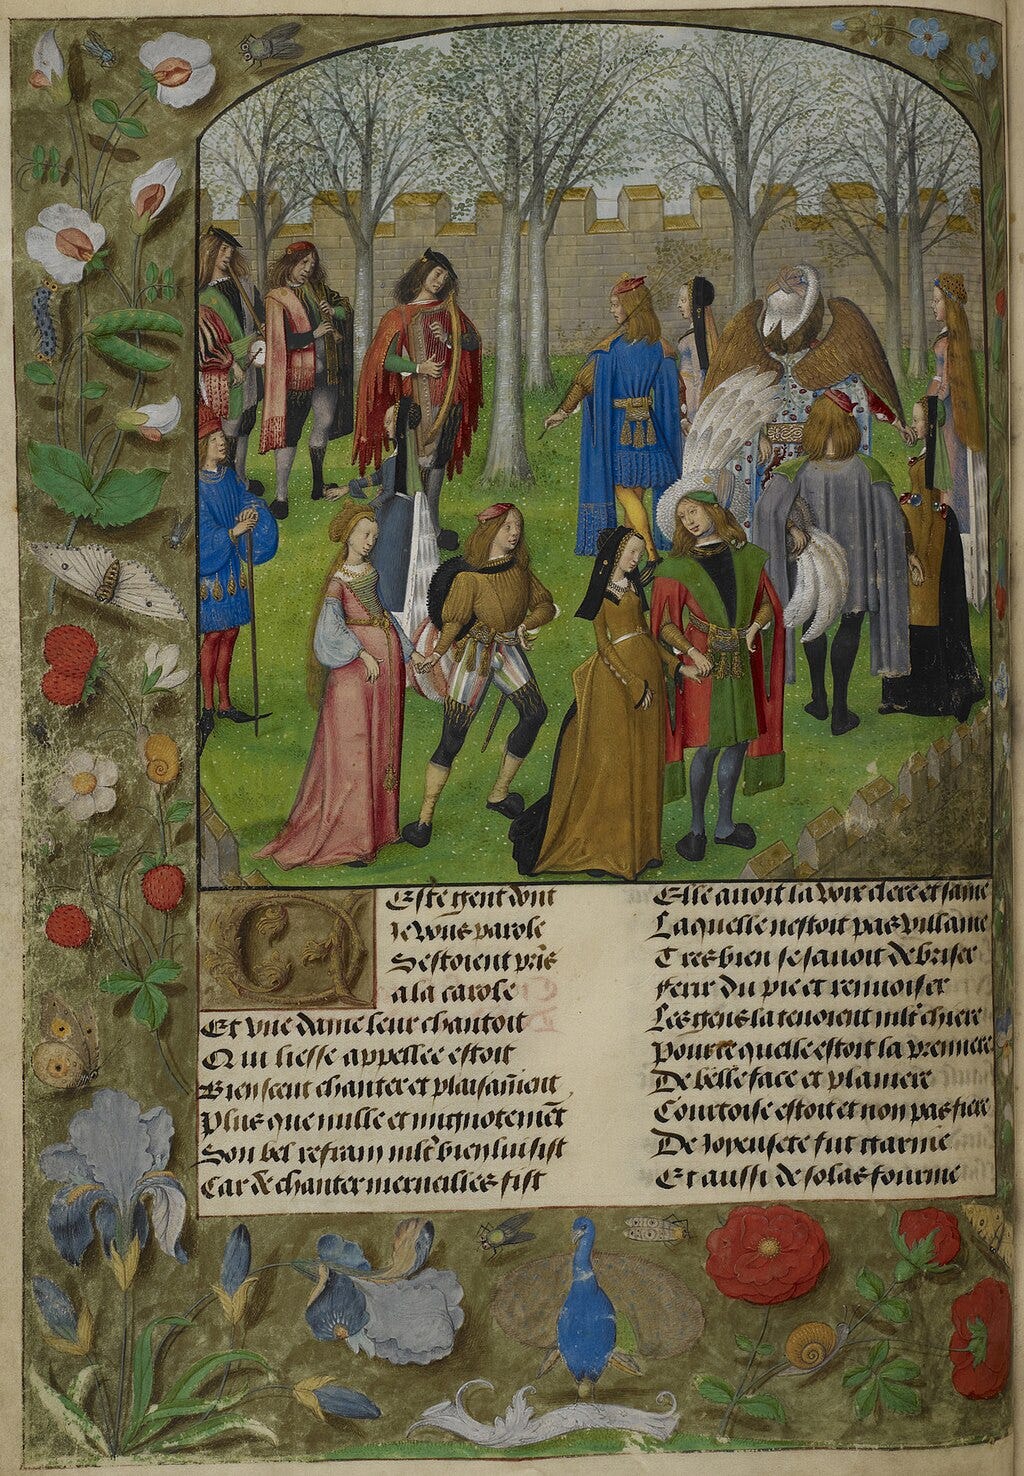 Ceste gent dont
Je vous parole
Sestoient pris
a la carole
Et vne dame leur chantoit
Qui liesse appellee estoit
Bien scent chanter et plaisãment
Plus que nulle et mignotemẽt
Son bel refrain mlt bien lui sist
Car de chanter merueilles fist
Elle auoit la voix clere et saine
Laquelle nestoit pas villaine
Tres bien se sauoit debriser
Ferir du pie et renuoiser
Les gens la tenoient mlt chiere
Pource quelle estoit la premiere
De belle face et planiere
Courtoise estoit et non pas fiere
De Joyeusete fut garnie
Et aussi de solas fournie